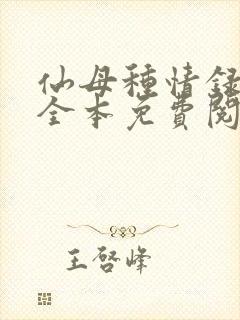 仙母種情録
全本免費閱
王啓峰